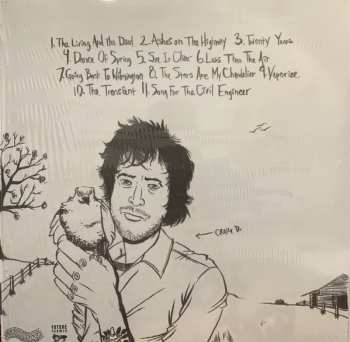 1. The Living And the Dead 2. Ashes on The Highway 3. Twenty Years
4. Dance Of Spring 5. Six In Choir 6. Less Than The Air
7. Going Back To Wilmington 8. The Stars Are My Chandelier 9. Vaporize
10. The Transient 11. Song For The Civil Engineer
← CRAIG D.
FUTURE